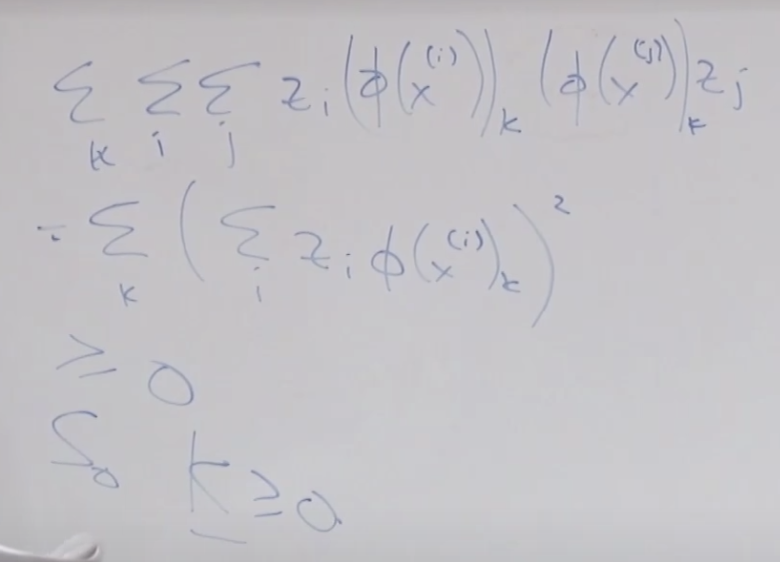 Σ_k Σ_i Σ_j z_i (φ(x^(i)))_k (φ(x^(j)))_k z_j
= Σ_k (Σ_i z_i φ(x^(i))_k)^2
≥ 0
So K ≥ 0